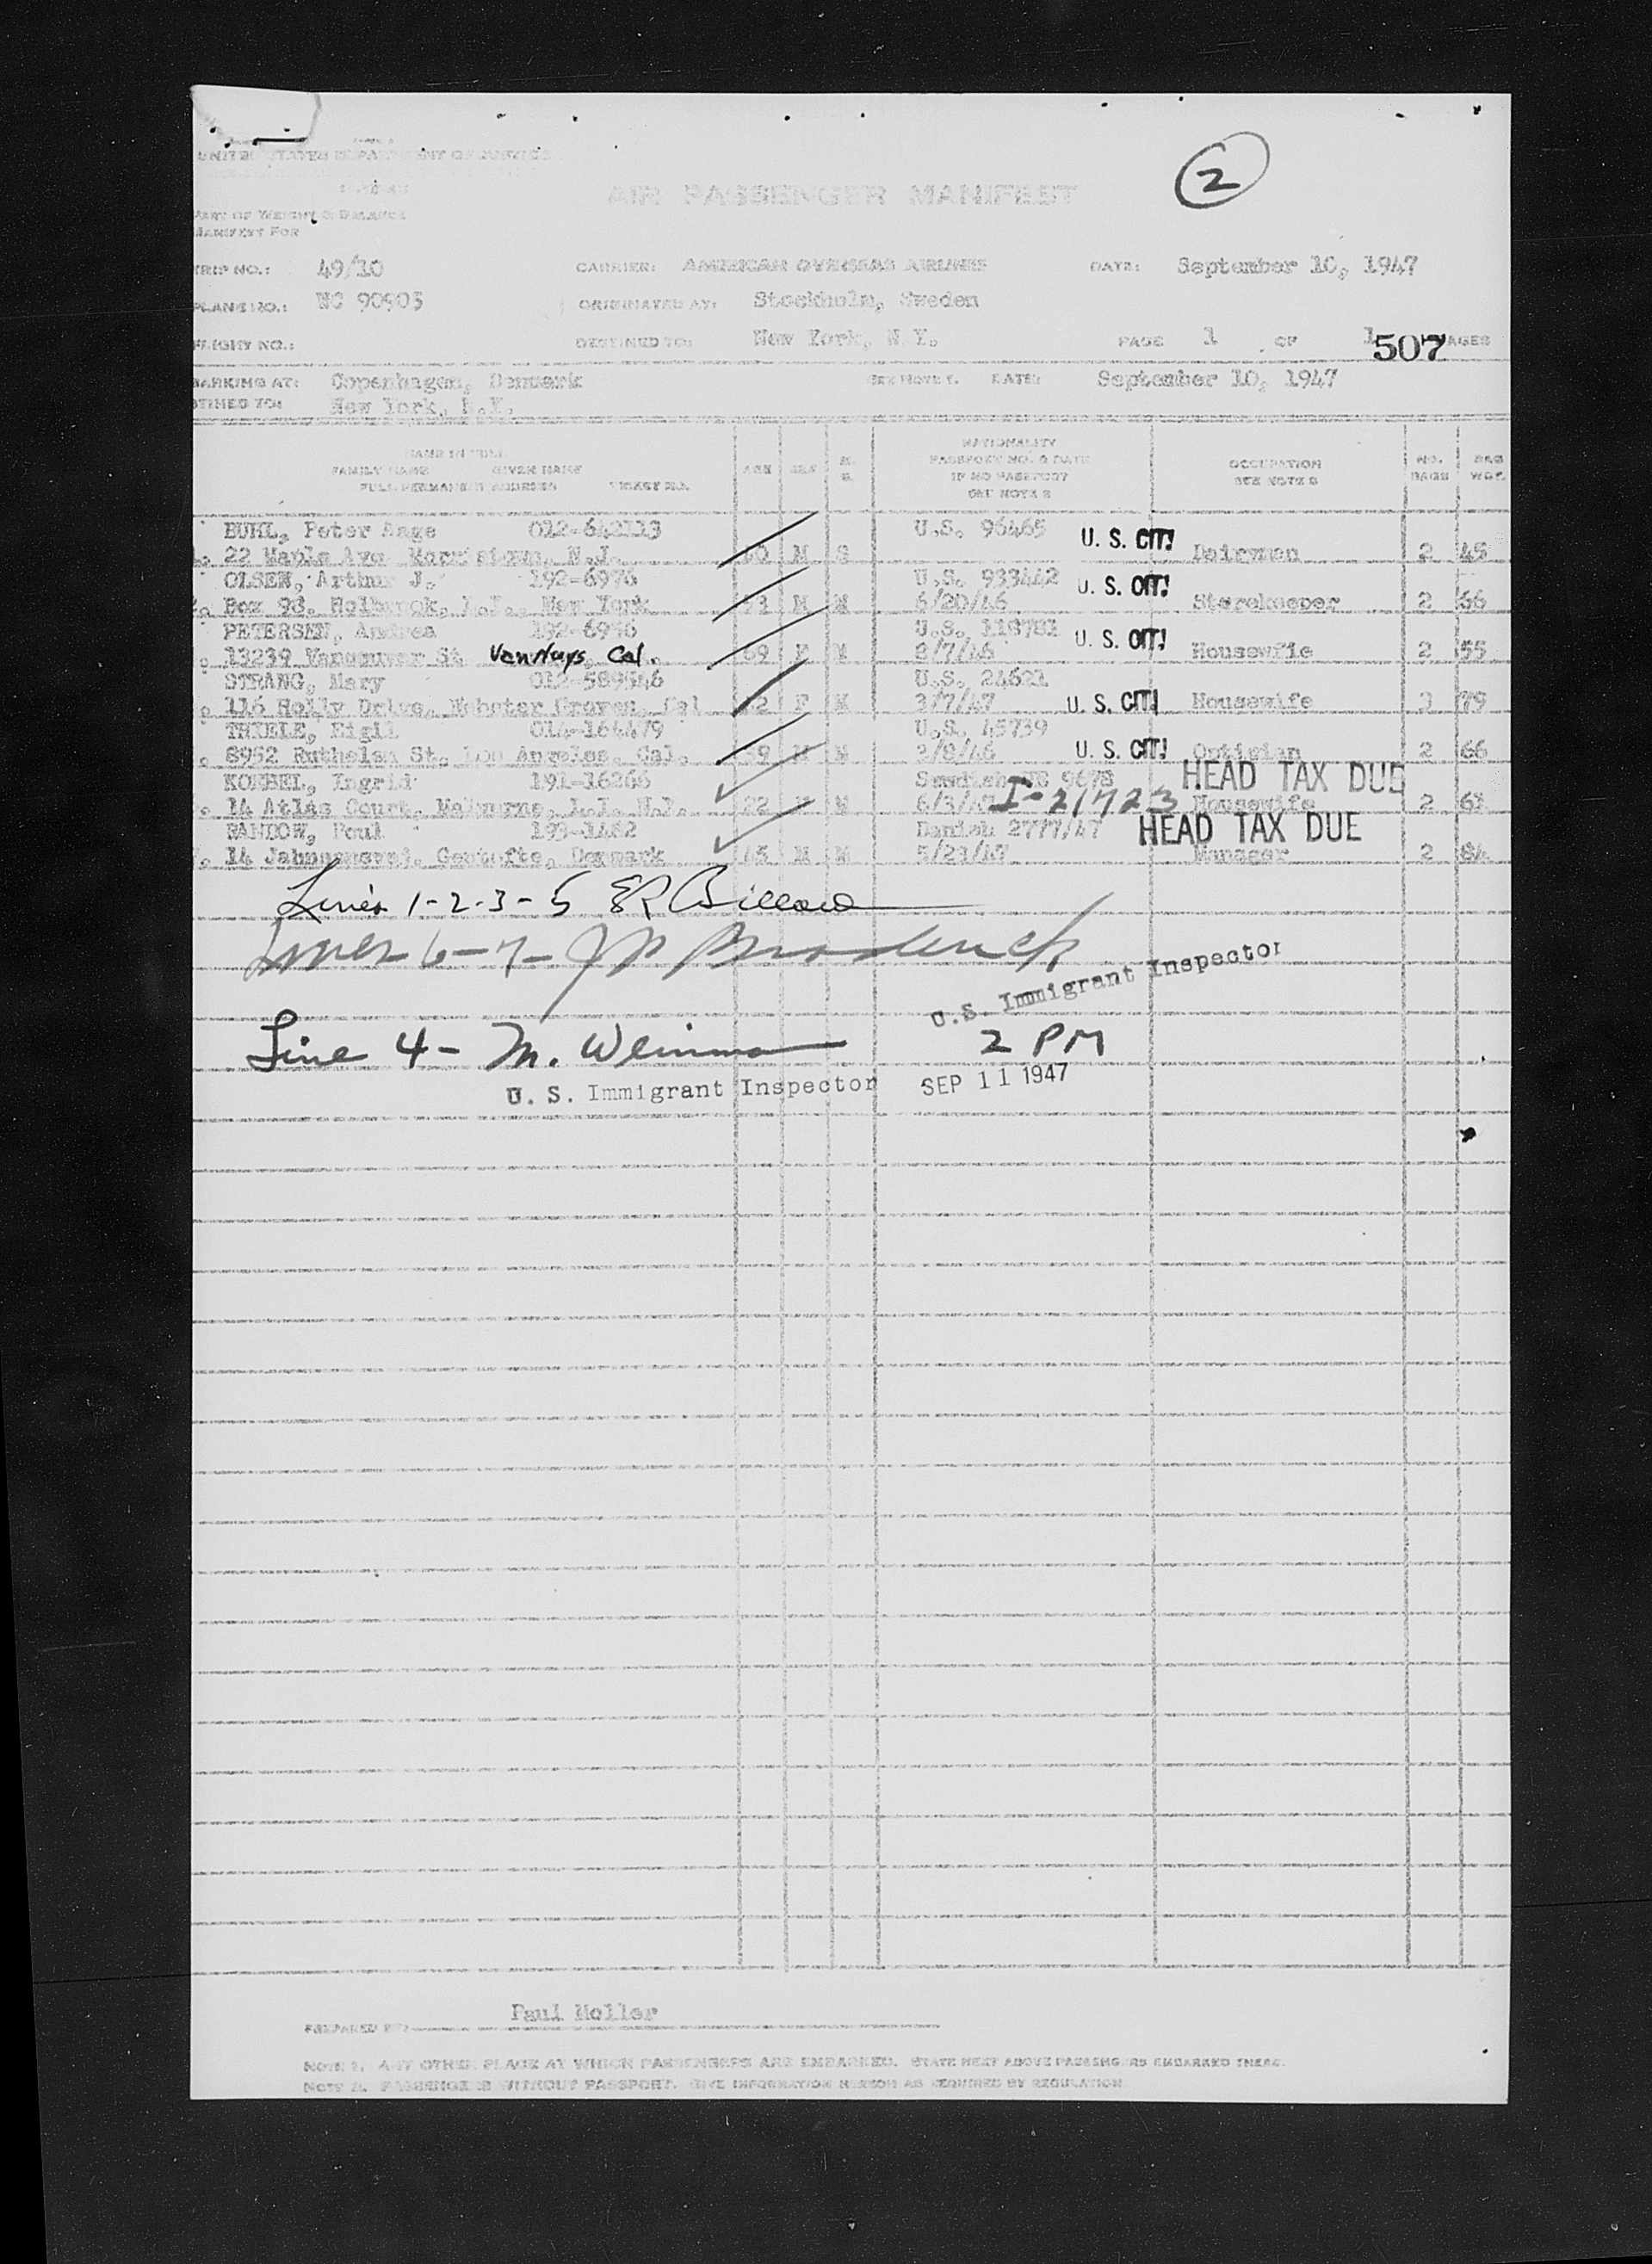 2
UNITED STATES DEPARTMENT OF JUSTICE
AIR PASSENGER MANIFEST
PART OF WEIGHT & BALANCE
MANIFEST FOR
TRIP NO.: 49/10 CARRIER: AMERICAN OVERSEAS AIRLINES DATE: September 10, 1947
PLANE NO.: NC 90903 ORIGINATED AT: Stockholm, Sweden
FLIGHT NO.: DESTINED TO: New York, N.Y. PAGE 1 OF 1 PAGES
507
BARKING AT: Copenhagen, Denmark SEE NOTE 1. DATE: September 10, 1947
TINED TO: New York, N.Y.
NAME IN FULL
FAMILY NAME GIVEN NAME
FULL PERMANENT ADDRESS TICKET NO.
AGE SEX M S
NATIONALITY
PASSPORT NO. & DATE
IF NO PASSPORT
SEE NOTE 2
OCCUPATION
SEE NOTE 2
NO. BAGS BAG WGT.
BUHL, Peter Aage 012-642113 U.S. 96465 U. S. CIT!
22 Maple Ave Morristown, N.J. 40 M S Dairyman 2 45
OLSEN, Arthur J. 192-6976 U.S. 933442 U. S. CIT!
Box 98. Holbrook, L.I., New York 73 M M 6/20/46 Storekeeper 2 66
PETERSEN, Andrea 192-6946 U.S. 118781 U. S. CIT!
13239 Vancouver St VanNuys Cal. 69 F M 8/7/46 Housewfie 2 55
STRANG, Mary 012-589546 U.S. 24621
116 Holly Drive, Webster Groves, Cal 2 F M 3/7/47 U. S. CIT! Housewife 3 79
THIELE, Eigil 014-164479 U.S. 45739
8952 Ruthelen St. Los Angeles, Cal. 39 M M 2/8/46 U. S. CIT! Optician 2 66
KOEBEL, Ingrid 191-16266 Swedish 9678 HEAD TAX DUE
14 Atlas Court, 22 M 6/3/47 I-21723 Housewife 2 61
BANDOW, Poul 193-1462 Danish 2777/47 HEAD TAX DUE
14 Gentofte, Denmark 45 M M 5/21/47 Manager 2 84
Lines 1-2-3-5 ER Billard
Lines 6-7- J P Broderick
U.S. Immigrant Inspector
Line 4- M. Weinman 2 PM
U. S. Immigrant Inspector SEP 11 1947
PREPARED BY: Paul Moller
NOTE 1. ANY OTHER PLACE AT WHICH PASSENGERS ARE EMBARKED. STATE NEXT ABOVE PASSENGERS EMBARKED THERE.
NOTE 2. PASSENGERS WITHOUT PASSPORT. GIVE INFORMATION HEREON AS REQUIRED BY REGULATION